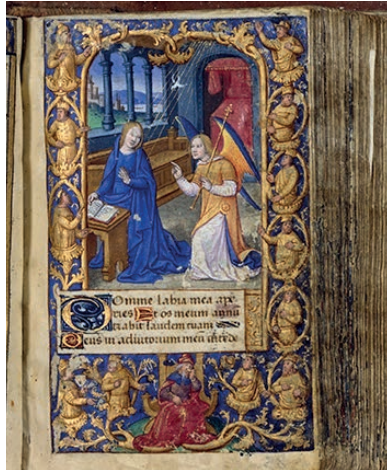 Domine labia mea ape
ries Et os meum annū
tiabit laudem tuam
Deus in adiutorium meū intēde